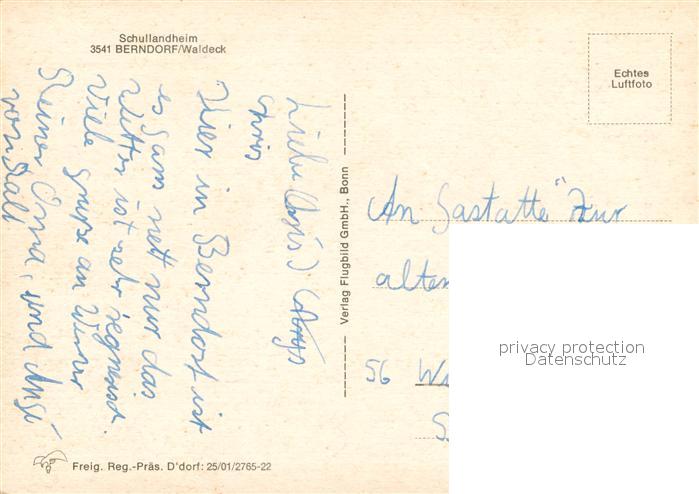 Schullandheim
3541 BERNDORF/Waldeck
Echtes
Luftfoto
Liebe
Hier in Berndorf ist
es ganz nett nur das
Wetter ist sehr regnerisch.
Viele grüße an Werner
Reiner Oma, und
von Ralf
Verlag Flugbild GmbH., Bonn
An Gastatte "Zur
alten
56 W
privacy protection
Datenschutz
Freig. Reg.-Präs. D'dorf: 25/01/2765-22